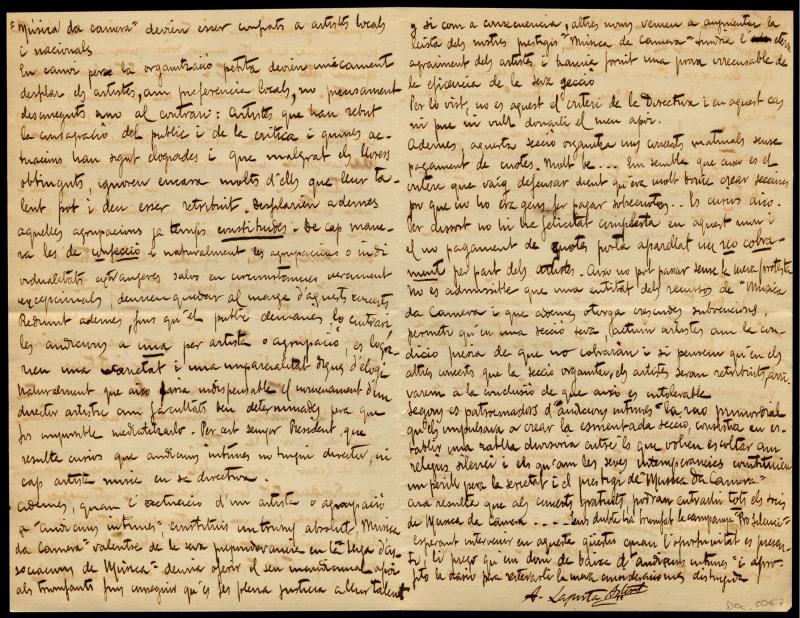 "Música da camera" devien esser confiats a artistes locals
i nacionals
En canvi per la organització petita devien unicament
desfilar els artistes, am preferencia locals, no precisament
desconeguts sino al contrari: Artistes que han rebut
la consagració del public i de la critica i quines ac-
tuacions han sigut elogiades i que malgrat els llorers
obtinguts, ignoren encara molts d'ells que leur ta-
lent pot i deu esser retribuit. Desfilarien ademes
aquelles agrupacions ja temps constituides. De cap mane-
ra les de confecció i naturalment, les agrupacions o indi
vidualitats extrangeres salvo en circumstancies verament
excepcionals, deurien quedar al marge d'aquets concerts
Reduint ademes, fins qu'el public demanes lo contrari
les audicions a una per artista o agrupació, es logra-
rien una varietat i una imparcialitat dignes d'elogi
Naturalment que aixo faria indispensable el nomenament d'un
director artistic am facultats ben determinades pera que
fos impossible mediatitzarlo. Per cert senyor President, que
resulta curios que audicions intimes no tingui director, ni
cap artista music en sa directiva.
Ademes, quan l'actuació d'un artista o agrupació
a "audicions intimes", constituis un triomf absolut, Musica
da Camera" valentse de la seva preponderancia en la lliga d'as-
sociacions de Musica" deuria oferir el seu incondicional apoi
als triomfants fins conseguir qu'es fes plena justicia a leur talent
y si com a consecuencia, altres noms venien a augmentar la
llista dels nostres prestigis "Musica da Camera" tindria l' etern
agraiment dels artistes i hauria donat una prova irrecusable de
la eficiencia de la seva secció
Per lo vist, no es aquest el criteri de la Directiva i en aquest cas
ni puc ni vull donarli el meu apoi.
Ademes, aquesta secció organitza uns concerts matinals sense
pagament de cuotes. Molt be... Em sembla que aixo es el
criteri que vaig defensar dient qu'era molt bonic crear seccions
pro que no ho era gens fer pagar sobrecuotes... Es curios aixo.
Per dissort no hi ha felicitat complerta en aquest mon i
el no pagament de quotes porta aparellat un no cobra-
ment per part dels artistes. Aixo no pot passar sense la meva protesta
No es admissible que una entitat dels recursos de "Musica
da Camera" i que ademes otorga crescudes subvencions,
permeti qu'en una secció seva, actuin artistes am la con-
dició previa de que no cobraran i si pensem qu'en els
altres concerts que la secció organitza, els artistes seran retribuits, arri-
varem a la conclusió de que aixo es intolerable
Segons es patrocinadors d'audicions intimes" la rao primordial
qu'els impulsava a crear la esmentada secció, consistia en es-
tablir una ratlla divisoria entre'ls que volien escoltar am
religios silenci i els qu'am les seves intemperancies constituien
un perill pera la serietat i el prestigi de "Musica da Camera"
Ara resulta que als concerts gratuits podran entrarhi tots els socis
de Musica da Camera.... Sens dubte ha triomfat la campanya "Pro Silenci"
Esperant intervenir en aquesta questio cuan l'oportunitat es presen-
ti, li prego qu'em doni de baixa d'"audicions intimes" i apro-
fito la ocasio pera reiterarli la meva consideracio mes distingida
A. Lapesta
Doc. 5067